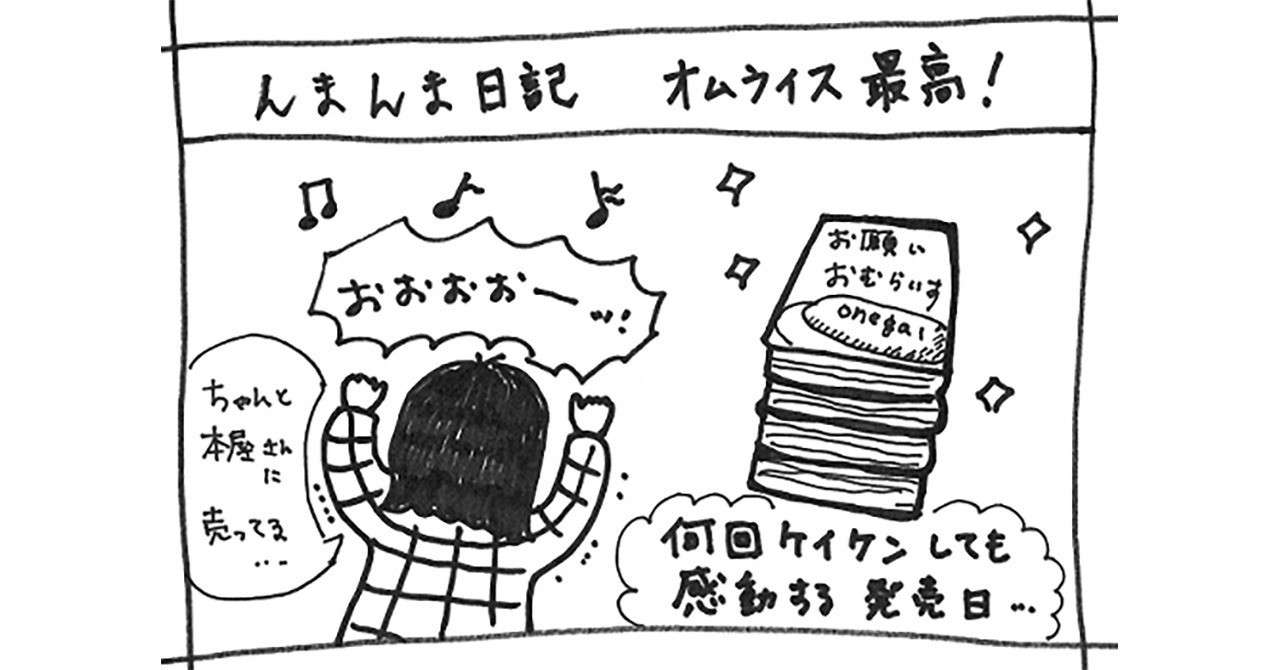 んまんま日記 オムライス最高！
おおおおーッ！
ちゃんと
本屋さん
に
売ってる
…
お願い
おむらいす
onegai
何回ケイケンしても
感動する発売日…